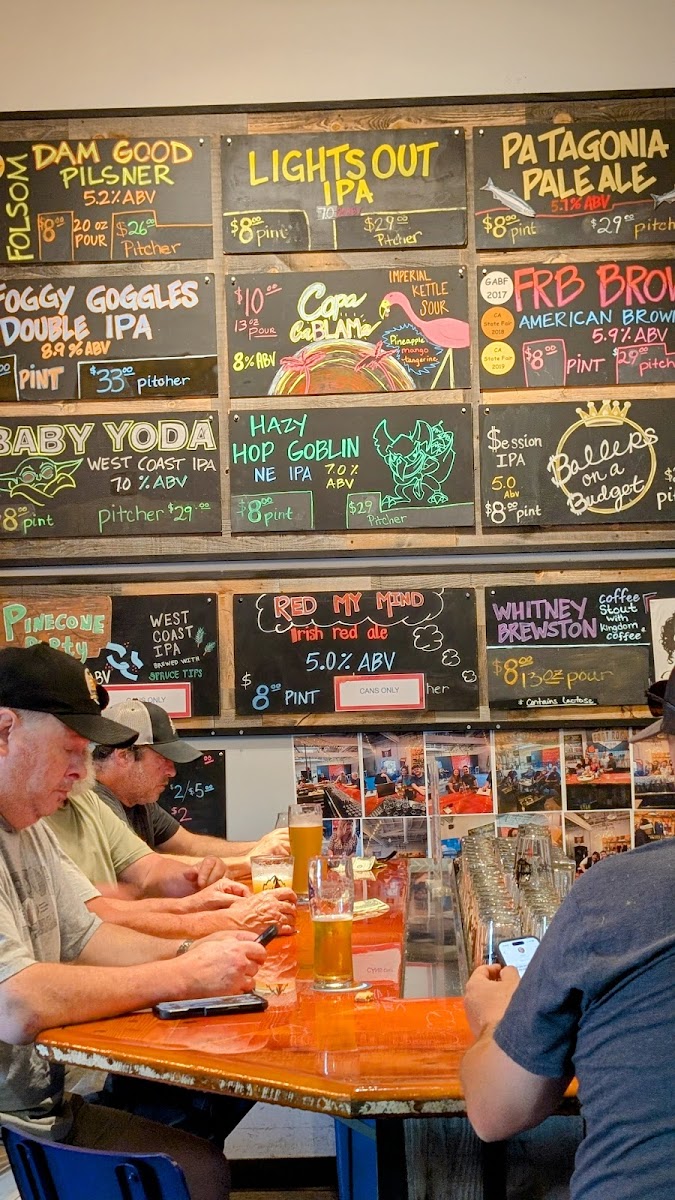 FOLSOM
DAM GOOD
PILSNER
5.2% ABV
$8.00
20 oz
POUR
$26.00
Pitcher
LIGHTS OUT
IPA
7.0
$8.00 pint
$29.00
Pitcher
PATAGONIA
PALE ALE
5.1% ABV
$8.00 pint
$29.00 pitch
FOGGY GOGGLES
DOUBLE IPA
8.9% ABV
PINT
$33.00 pitcher
$10.00
13oz
Pour
8% ABV
Copa
CaBLAMa
IMPERIAL
KETTLE
SOUR
Pineapple
mango
tangerine
GABF
2017
CA
State Fair
2018
CA
State Fair
2019
FRB BROW
AMERICAN BROW
5.9% ABV
$8.00 PINT
$29.00 pitch
BABY YODA
WEST COAST IPA
7.0 % ABV
8.00 pint
pitcher $29.00
HAZY
HOP GOBLIN
NE IPA
7.0%
ABV
$8.00 pint
$29
Pitcher
$ession
IPA
5.0
Abv
$8.00 pint
Ballers
on a
Budget
PINECONE
Party
WEST
COAST
IPA
BREWED WITH
SPRUCE TIPS
BV
CANS ONLY
RED MY MIND
Irish red ale
5.0% ABV
$8.00 PINT
CANS ONLY
her
WHITNEY
BREWSTON
Coffee
Stout
with
Kingdom
coffee
$8.00 13oz pour
* Contains lactose
$2/$5.00
$2